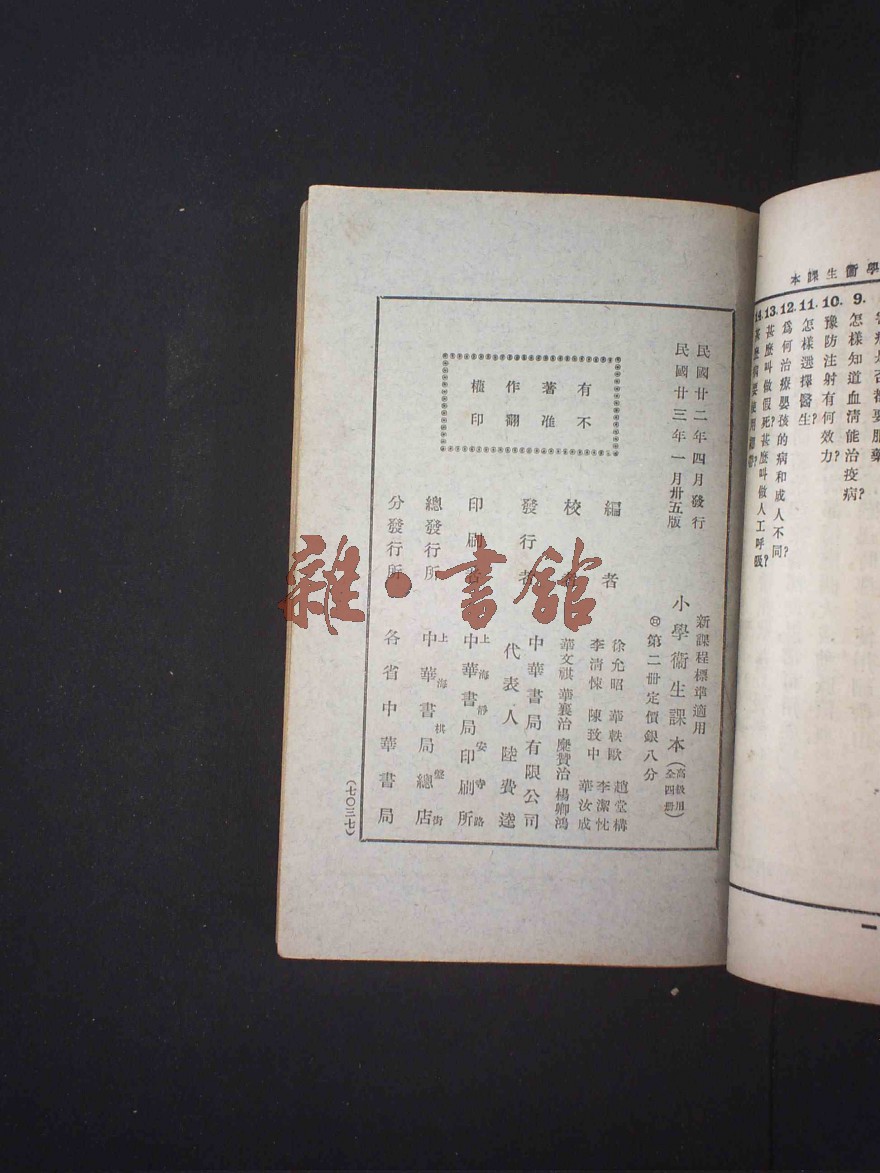 學衞生課本
9. 怎樣知道血清能治疫病?
10. 豫防注射有何效力?
11. 怎樣選擇醫生?
12. 爲何治療嬰孩的病和成人不同?
13. 甚麼叫做假死?甚麼叫做人工呼吸?
一
民國廿二年四月發行
民國廿三年一月卅五版
有著作權
不准翻印
新課程標準適用
小學衞生課本(高級用全四冊)
第二冊定價銀八分
編者
徐允昭 華軼歐 趙堂構
李清悚 陳致中 李潔忱
華汝成
校者
華文祺 華襄治 糜贊治 楊卿鴻
發行者
中華書局有限公司
代表人陸費逵
印刷者
上海靜安寺路
中華書局印刷所
總發行所
上海棋盤街
中華書局總店
分發行所
各省中華書局
(七〇三七)
雜·書館